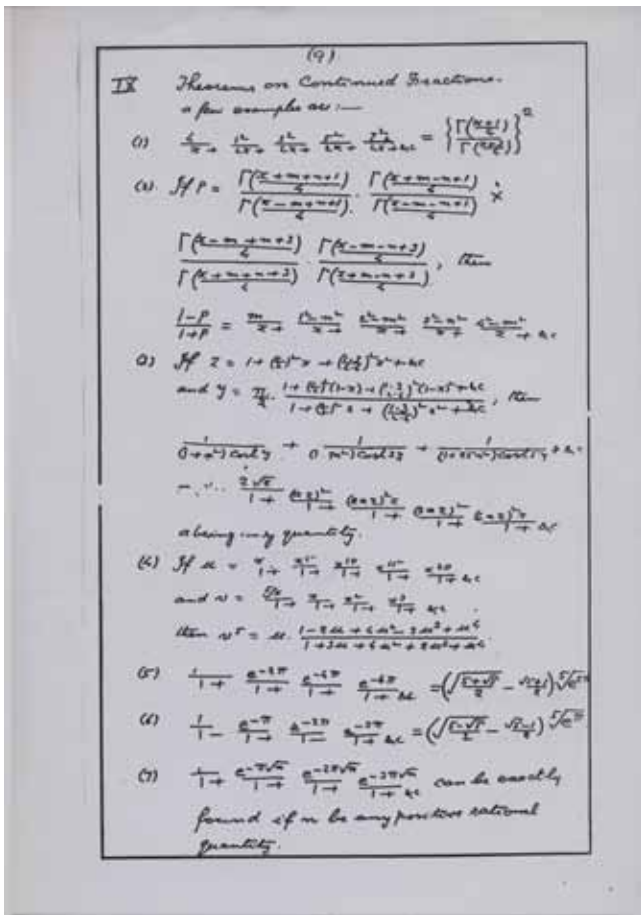 (9)
IX Theorems on Continued Fractions.
a few examples are :—
(1) 4/x + 1²/2x + 3²/2x + 5²/2x + 7²/2x + &c = {Γ((x+1)/4)/Γ((x+3)/4)}²
(2) If P = Γ((x+m+n+1)/4)/Γ((x-m+n+1)/4) · Γ((x+m-n+1)/4)/Γ((x-m-n+1)/4) ×
Γ((x-m+n+3)/4)/Γ((x+m+n+3)/4) · Γ((x-m-n+3)/4)/Γ((x+m-n+3)/4), then
(1-P)/(1+P) = m/x + (1²-n²)/x + (2²-m²)/x + (3²-n²)/x + (4²-m²)/x + &c
(3) If z = 1 + (1/2)²x + (1·3/2·4)²x² + &c
and y = π/2 · (1 + (1/2)²(1-x) + (1·3/2·4)²(1-x)² + &c)/(1 + (1/2)²x + (1·3/2·4)²x² + &c), then
a being any quantity.
(4) If u = x/1 + x⁵/1 + x¹⁰/1 + x¹⁵/1 + x²⁰/1 + &c
and v = ⁵√x/1 + x/1 + x²/1 + x³/1 + &c
then v⁵ = u · (1-2u+4u²-3u³+u⁴)/(1+3u+4u²+2u³+u⁴)
(5) 1/1 + e^(-2π)/1 + e^(-4π)/1 + e^(-6π)/1 + &c = (√((5+√5)/2) - (√5+1)/2) ⁵√(e^(2π))
(6) 1/1 - e^(-π)/1 + e^(-2π)/1 - e^(-3π)/1 + &c = (√((5-√5)/2) - (√5-1)/2) ⁵√(e^π)
(7) 1/1 + e^(-π√n)/1 + e^(-2π√n)/1 + e^(-3π√n)/1 + &c can be exactly
found if n be any positive rational
quantity.